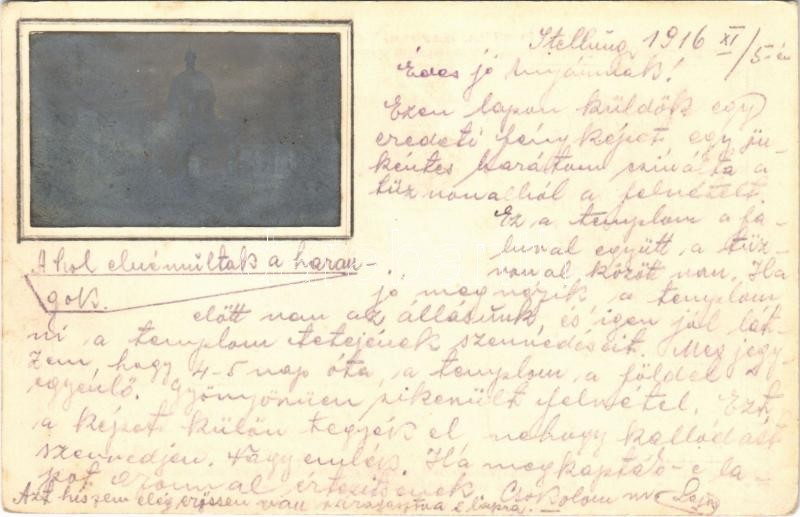 Stellung, 1916 XI/5-én
Édes jó Anyámnak!
Ezen lapon küldök egy
eredeti fényképet egy ön-
kéntes barátom csinálta a
tűzvonalból a felvételt.
Ez a templom a fa-
luval együtt a tűz-
vonal között van. Ha
jó megnézik a templom
előtt van az állásunk, és igen jól lát-
ni a templom tetejének szenvedéseit. Megjegy-
zem, hogy 4-5 nap óta, a templom a földel
egyenlő. Gyönyörűen sikerült felvétel. Ezt
a képet külön tegyék el, nehogy kallódást
szenvedjen. Nagy emlék. Ha megkapták-e la-
pot azonnal értesítsenek Csókolom
Azt hiszem elég erőssen van ragasztva e lapra. —
A hol elnémúltak a haran-
gok.